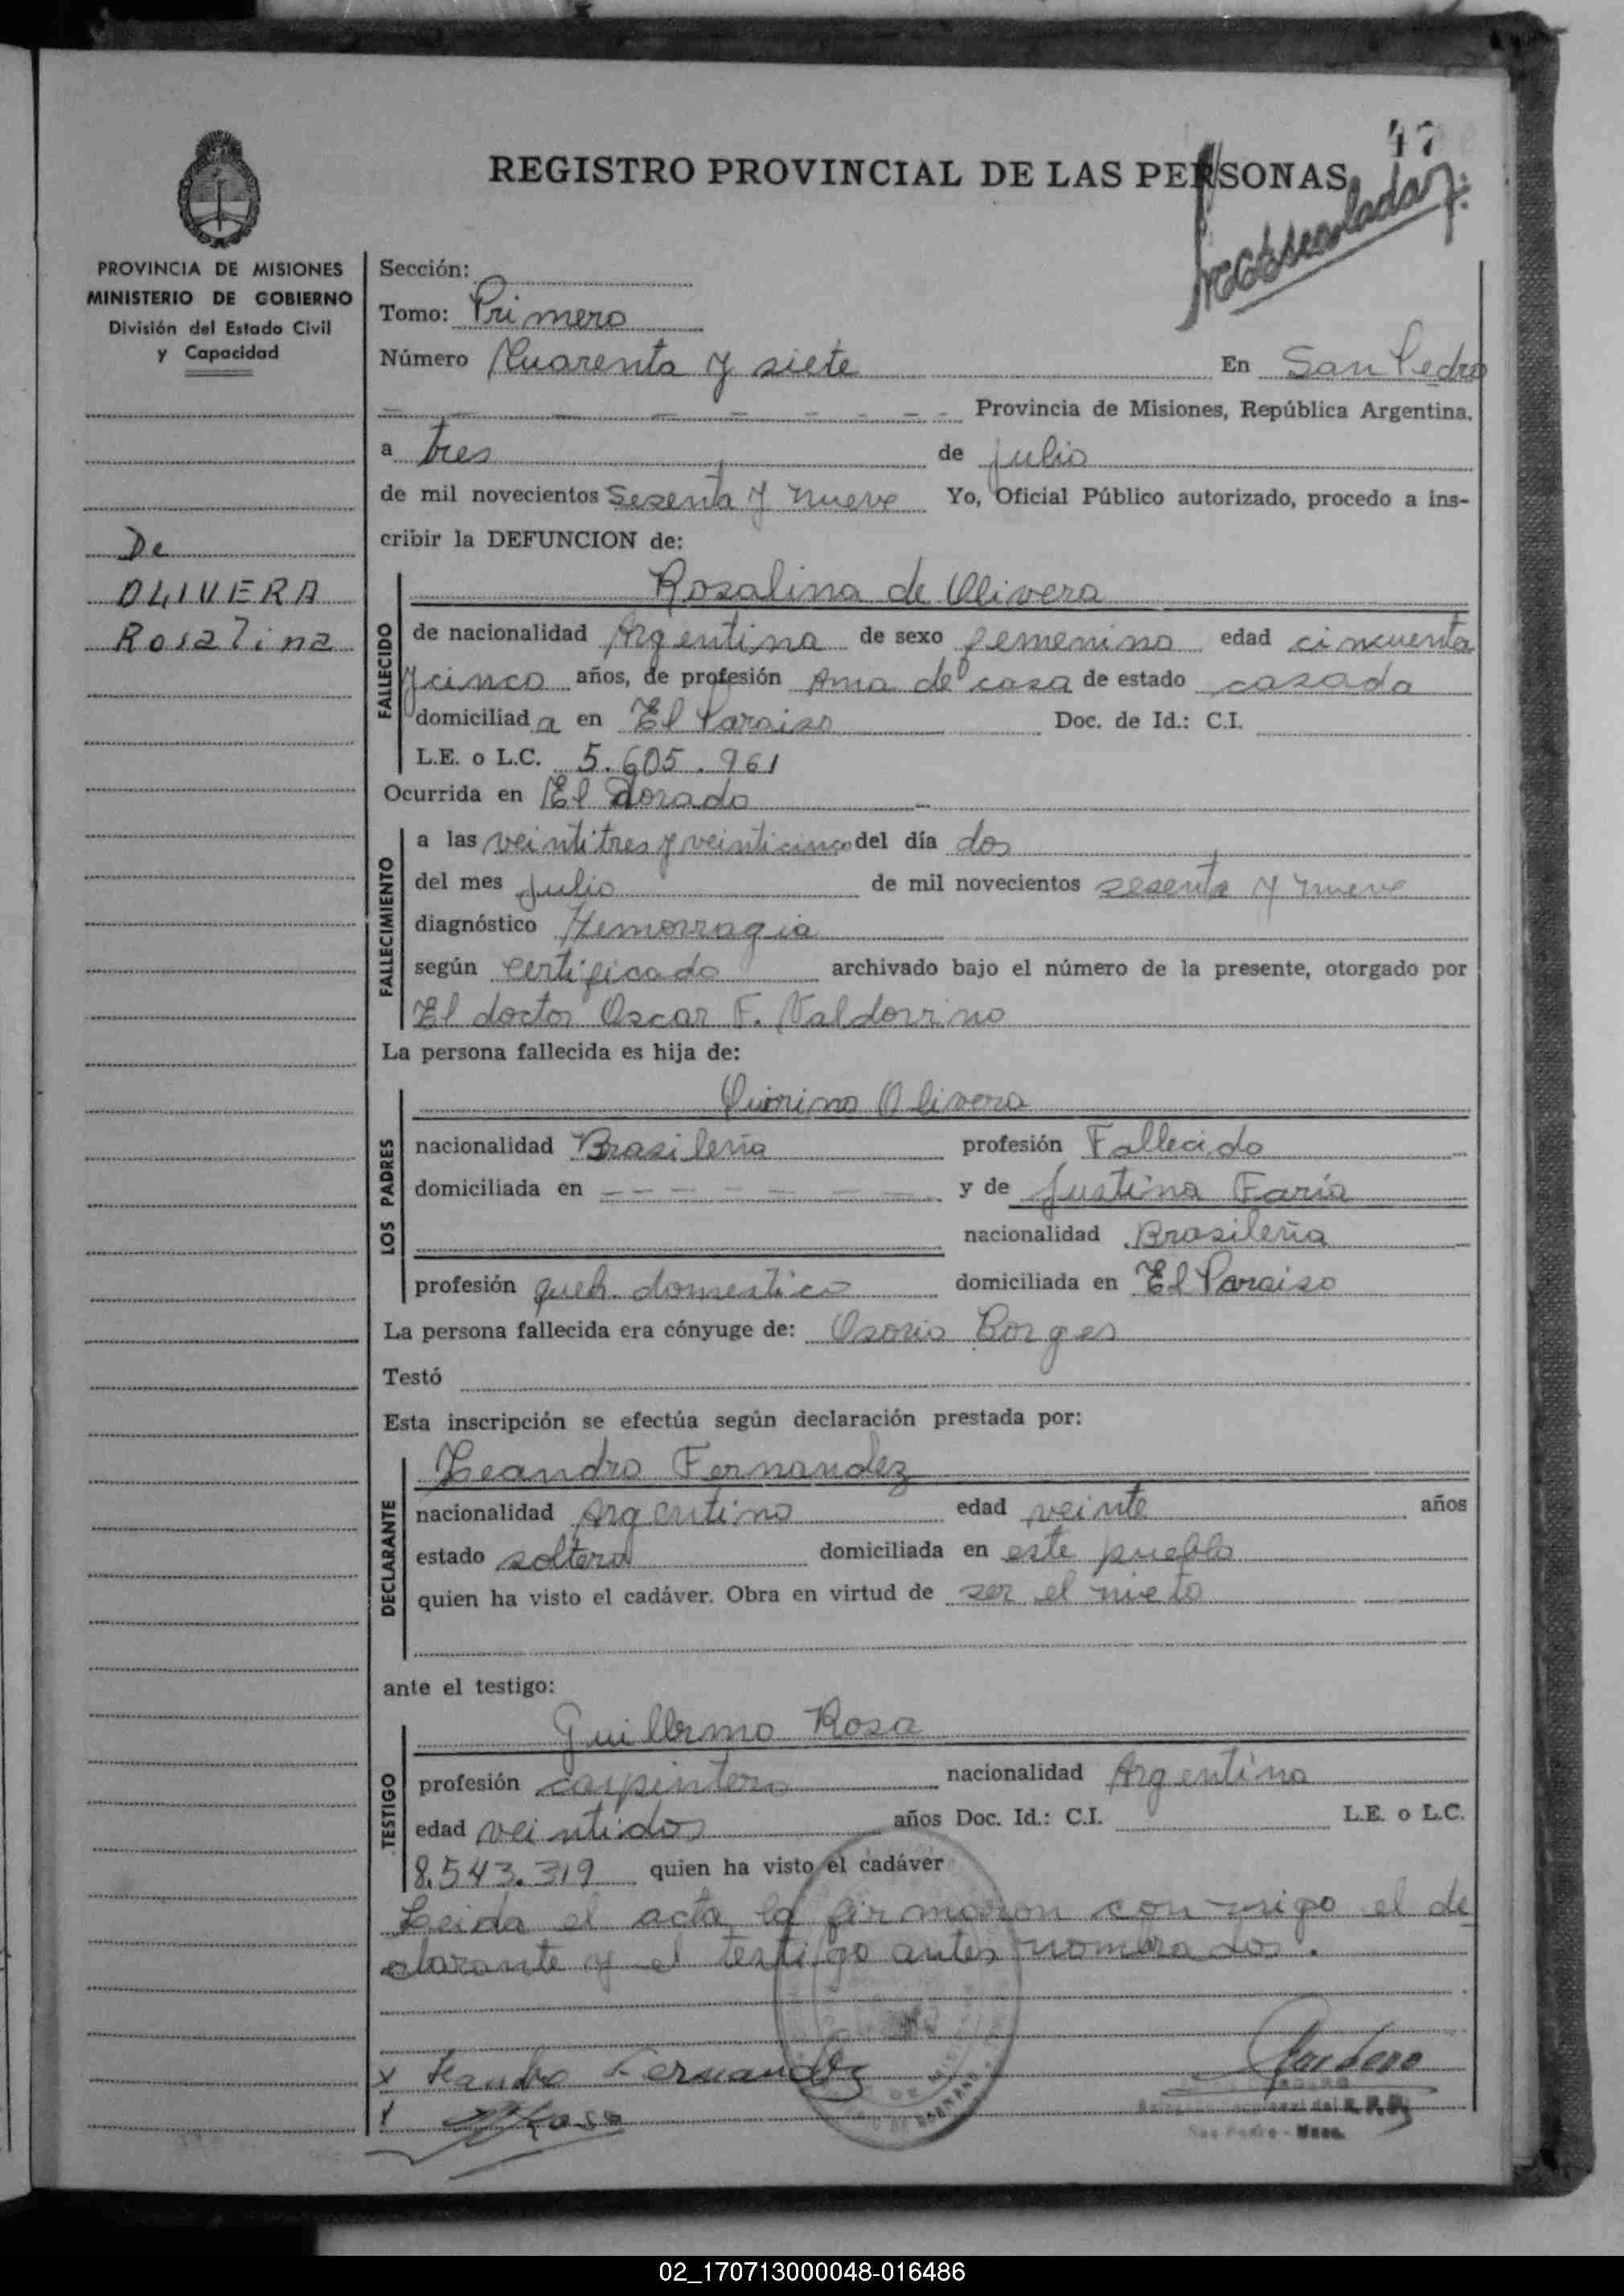 47
REGISTRO PROVINCIAL DE LAS PERSONAS
PROVINCIA DE MISIONES
MINISTERIO DE GOBIERNO
División del Estado Civil
y Capacidad
De
OLIVERA
Rosalina
Sección:
Tomo: Primero
Número Cuarenta y siete En San Pedro
Provincia de Misiones, República Argentina,
a tres de julio
de mil novecientos Sesenta y nueve Yo, Oficial Público autorizado, procedo a ins-
cribir la DEFUNCION de:
FALLECIDO
Rosalina de Olivera
de nacionalidad Argentina de sexo femenino edad cincuenta
y cinco años, de profesión Ama de casa de estado casada
domiciliad a en El Paraiso Doc. de Id.: C.I.
L.E. o L.C. 5.605.961
Ocurrida en El dorado
FALLECIMIENTO
a las veintitres y veinticinco del día dos
del mes Julio de mil novecientos sesenta y nueve
diagnóstico Hemorragia
según certificado archivado bajo el número de la presente, otorgado por
El doctor Oscar F. Valdovino
La persona fallecida es hija de:
LOS PADRES
Olivera
nacionalidad Brasileña profesión Fallecido
domiciliada en - - - - - - - y de Justina Faria
nacionalidad Brasileña
profesión queh. domestico domiciliada en El Paraiso
La persona fallecida era cónyuge de: Osorio Borges
Testó
Esta inscripción se efectúa según declaración prestada por:
DECLARANTE
Leandro Fernandez
nacionalidad Argentino edad veinte años
estado soltero domiciliada en este pueblo
quien ha visto el cadáver. Obra en virtud de ser el nieto
ante el testigo:
TESTIGO
Guillermo Rosa
profesión carpintero nacionalidad Argentino
edad veintidos años Doc. Id.: C.I. L.E. o L.C.
8.543.319 quien ha visto el cadáver
Leida el acta la firmaron conmigo el de
clarante y el testigo antes nombrados.
x Leandro Fernandez
Rosa
R.P.P.
San Pedro - Mnes.
02_170713000048-016486